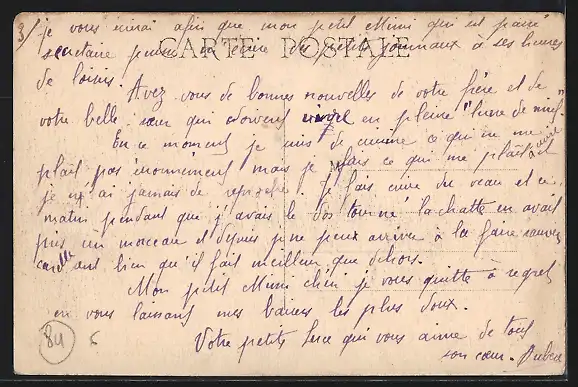 3/ je vous aimai afin que mon petit Mimi qui est passé
secrétaire puisse en écrire des petits journaux à ses heures
CARTE POSTALE
de loisirs. Avez vous de bonnes nouvelles de votre frère et de
votre belle-sœur qui doivent en pleine "lune de miel".
En ce moment je suis de cuisine ce qui ne me
plait pas énormément mais je fais ce qui me plait
je n'ai jamais de reproche. Je fais cuire du veau et ce
matin pendant que j'avais le dos tourné la chatte en avait
pris un morceau et depuis je ne peux arriver à la faire sauver
car elle sent bien qu'il fait meilleur que dehors.
Mon petit Mimi chéri je vous quitte à regret
en vous laissant mes baisers les plus doux.
Votre petite qui vous aime de tout
son cœur.
84